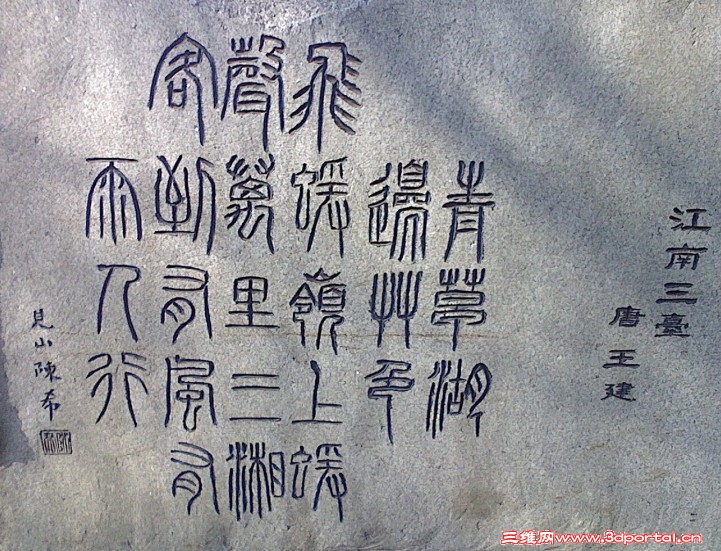 江南三臺
唐王建
青草湖
邊艸色
飛蝯嶺上蝯
聲萬里三湘
客到有風有
雨人行
見山陳希
三维网www.3dportal.cn